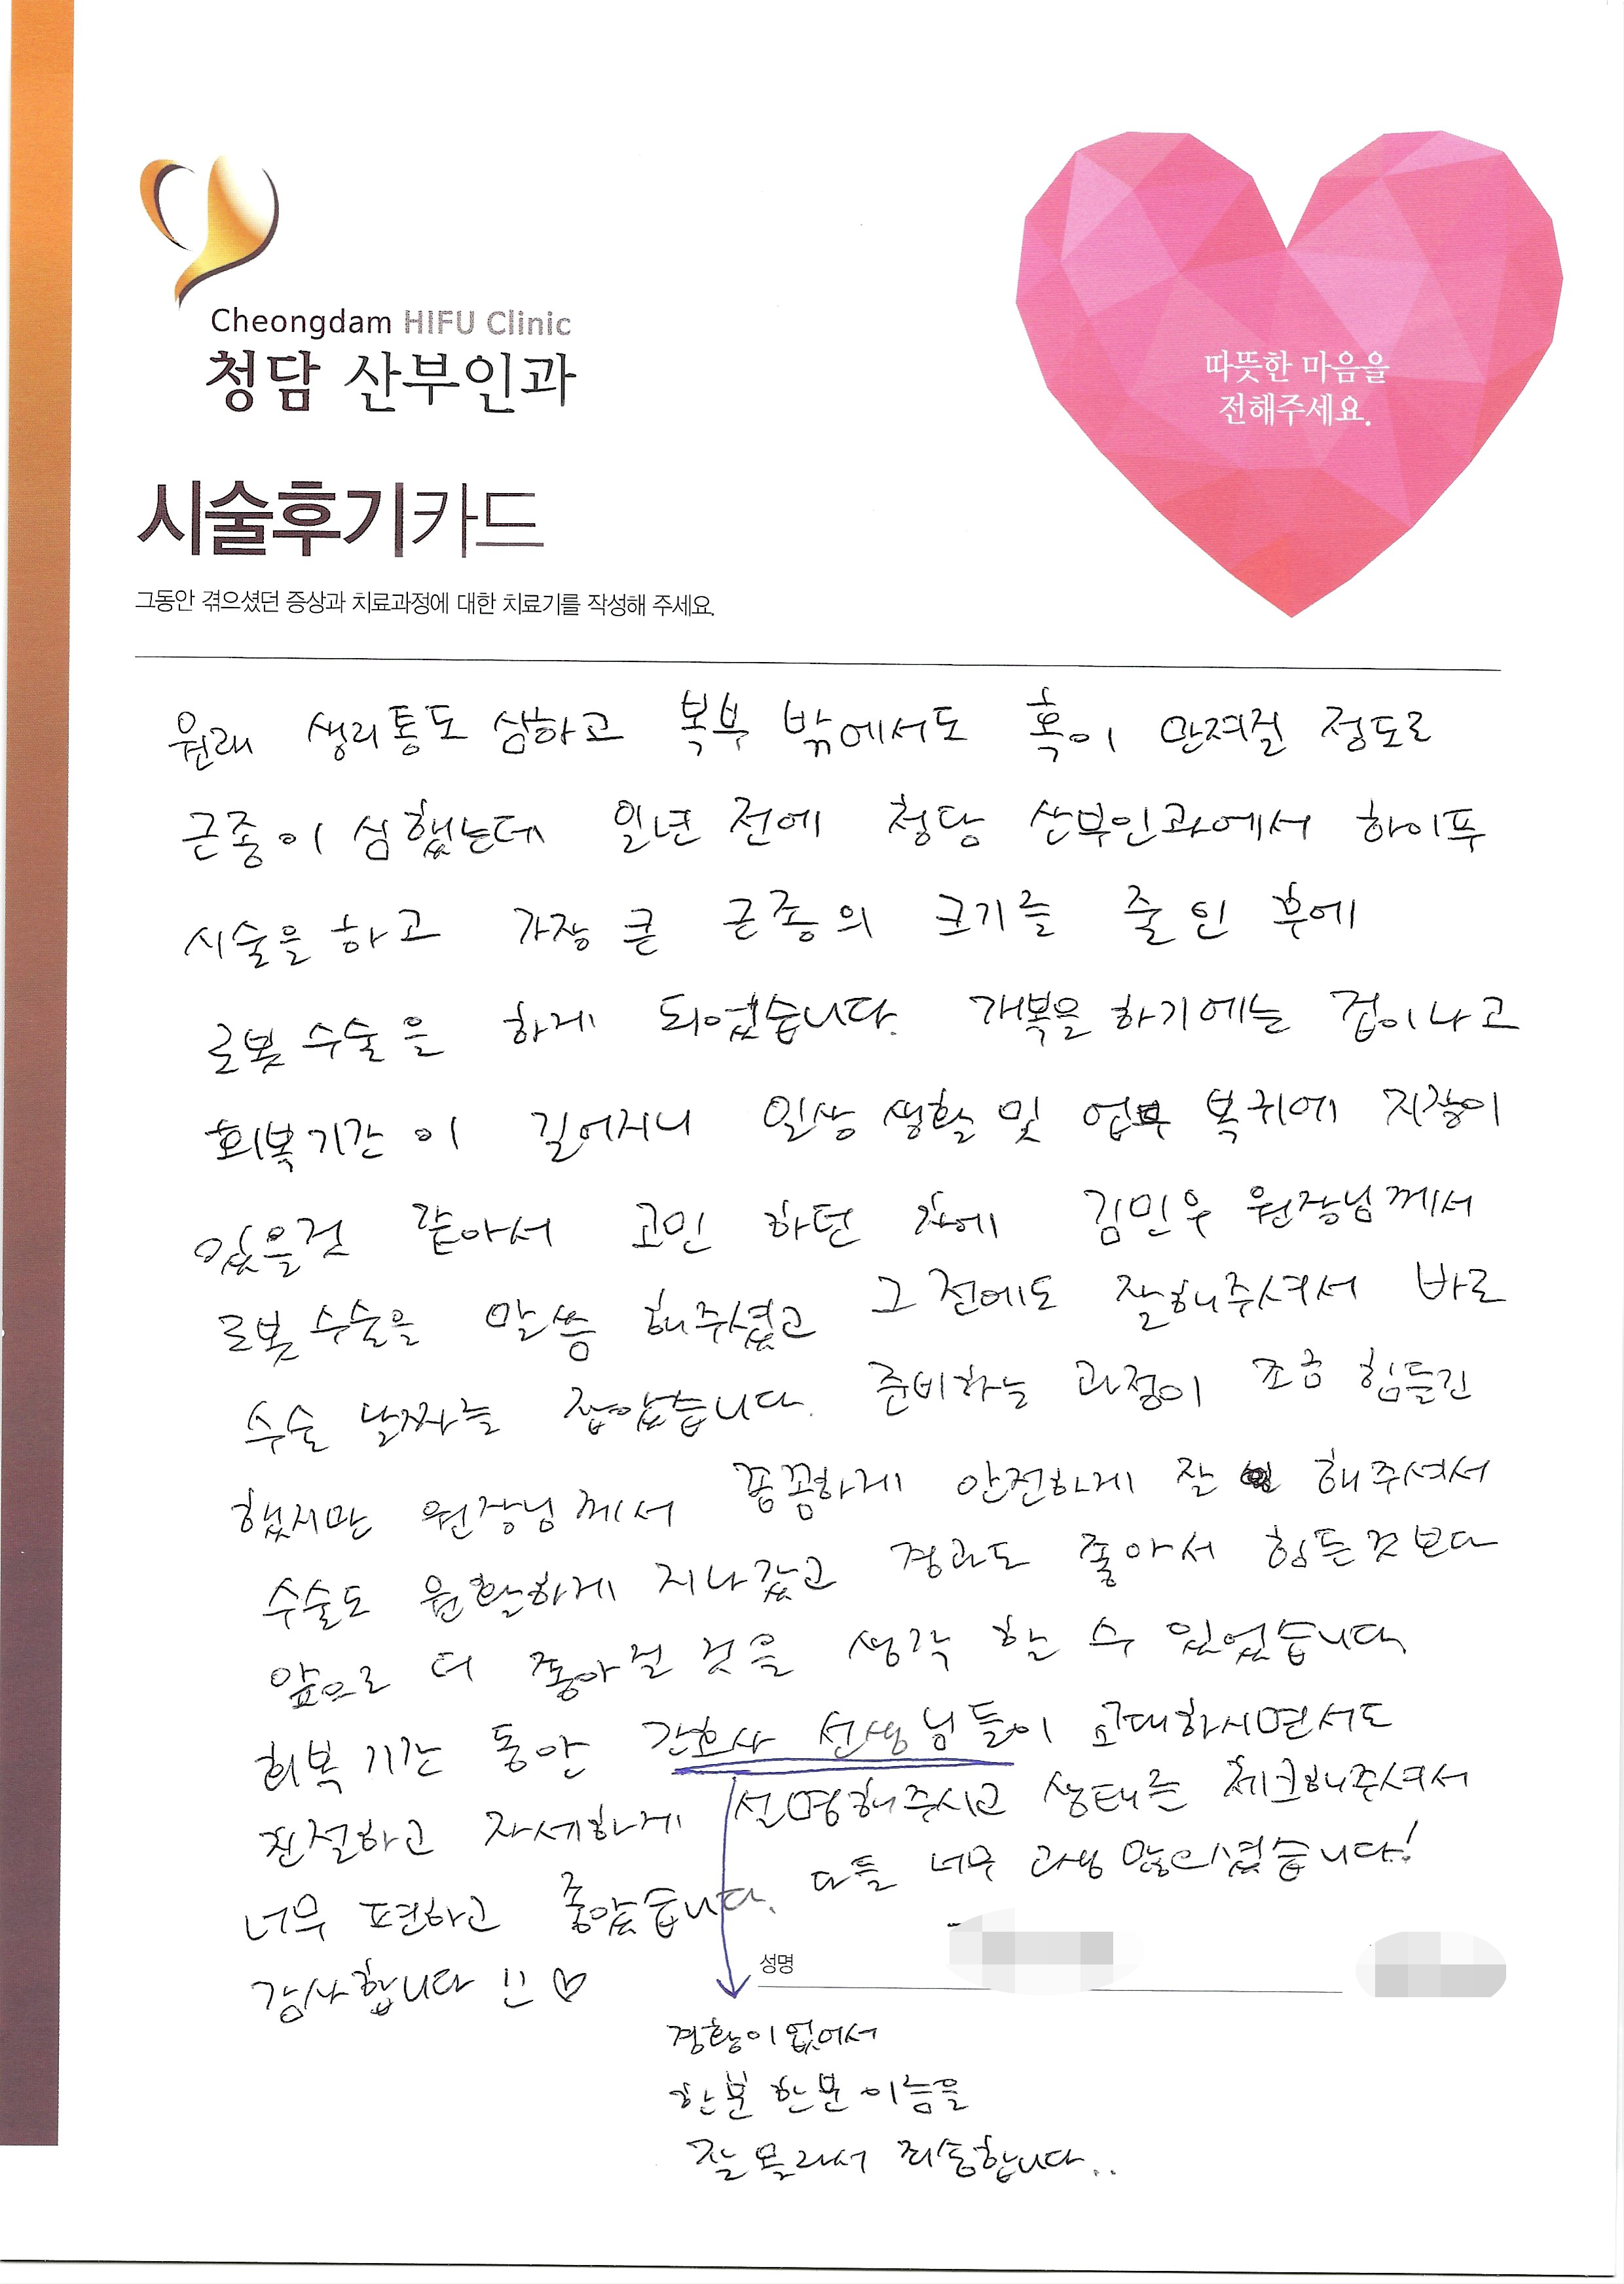 Cheongdam HIFU Clinic
청담 산부인과
따뜻한 마음을
전해주세요.
시술후기카드
그동안 겪으셨던 증상과 치료과정에 대한 치료기를 작성해 주세요.
원래 생리통도 심하고 복부 밖에서도 혹이 만져질 정도로
근종이 심했는데 일년 전에 청담 산부인과에서 하이푸
시술을 하고 가장 큰 근종의 크기를 줄인 후에
로봇 수술을 하게 되었습니다. 개복을 하기에는 겁이나고
회복기간이 길어지니 일상 생활 및 업무 복귀에 지장이
있을것 같아서 고민 하던 차에 김민우 원장님께서
로봇 수술을 말씀 해주셨고 그 전에도 잘해주셔서 바로
수술 날짜를 잡았습니다. 준비하는 과정이 조금 힘들긴
했지만 원장님께서 꼼꼼하게 안전하게 잘 해주셔서
수술도 원활하게 지나갔고 경과도 좋아서 힘든것보다
앞으로 더 좋아질 것을 생각 할 수 있었습니다
회복 기간 동안 간호사 선생님들이 교대하시면서도
친절하고 자세하게 설명해주시고 상태를 체크해주셔서
너무 편하고 좋았습니다. 다들 너무 고생 많으셨습니다!
감사합니다 !! ♡
성명
경황이 없어서
한분 한분 이름을
잘 몰라서 죄송합니다..